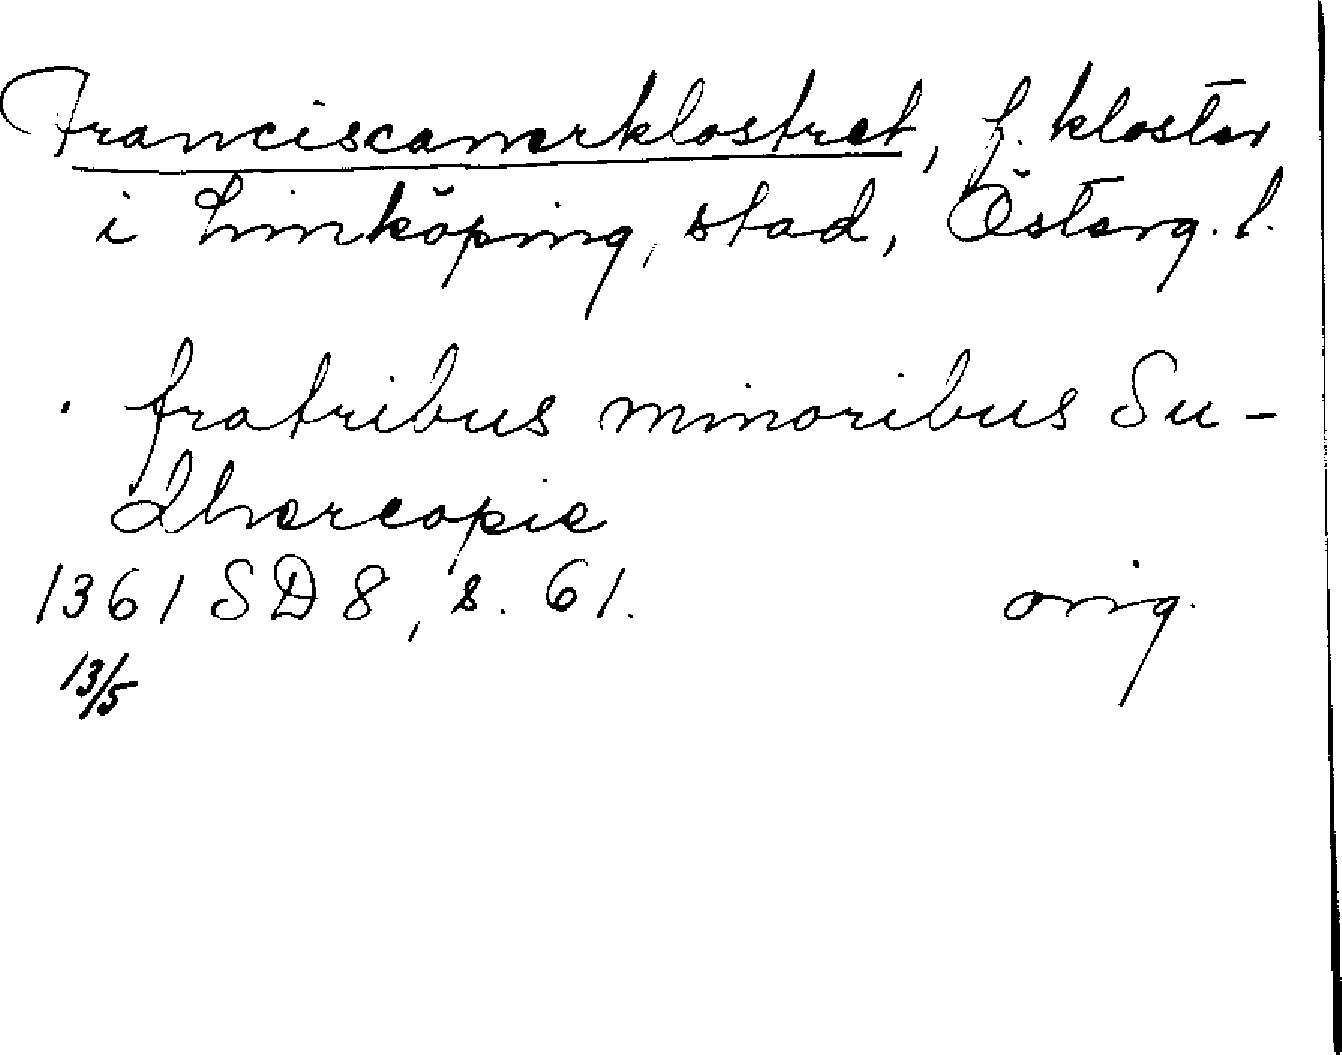 Franciscanerklostret, f. kloster
i Linköping, stad, Österg. l.
· fratribus minoribus Su-
dhercopie
1361 SD 8, s. 61. orig.
13/5